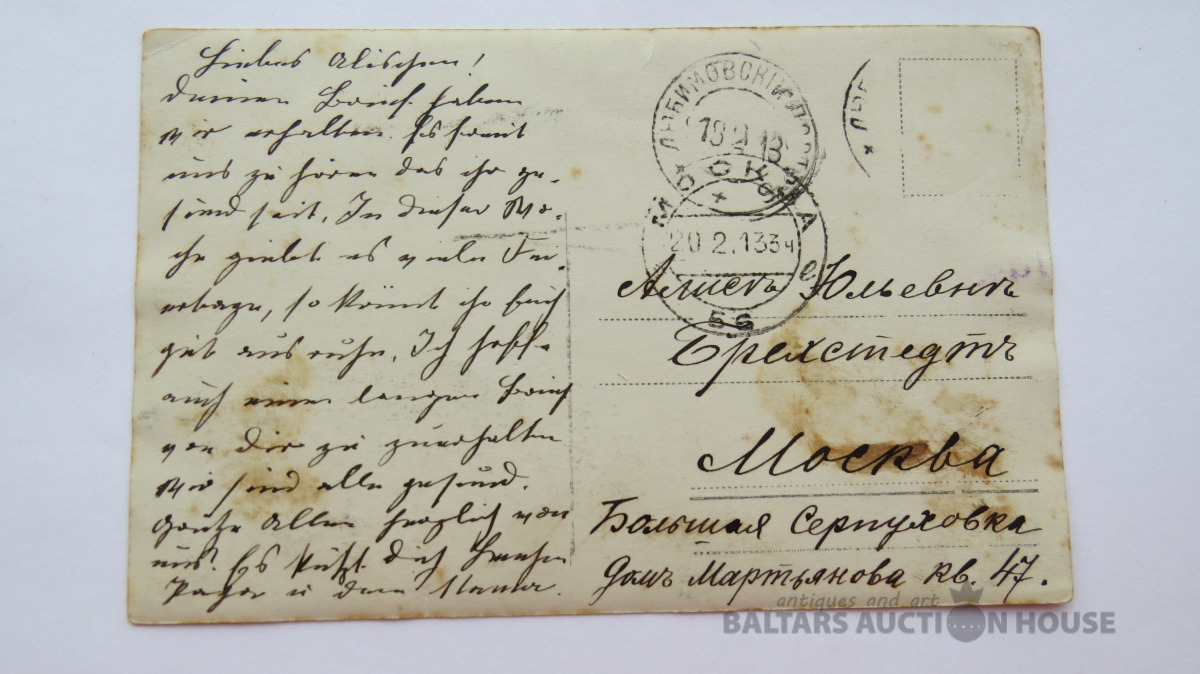 Liebes Alischen!
Deinen Brief haben
wir erhalten. Es freut
uns zu hören das ihr ge-
sund seit. In dieser Wo-
che giebt es viele Fei-
ertage, so könnt ihr Euch
gut ausruhn. Ich hoffe
auch einen langen Brief
von dir zu zuerhalten
Wir sind alle gesund.
Grüße Allen herzlich von
uns. Es küßt dich
Papa u deine Mama.
ЛЮБИМОВСКІЙ ПОСТ
19 2 13
МОСКВА
20.2.13 3Ч
Алисѣ Юльевнѣ
Брехстедтъ
Москва
Большая Серпуховка
Домъ Мартьянова кв. 47.
antiques and art
BALTARS AUCTION HOUSE